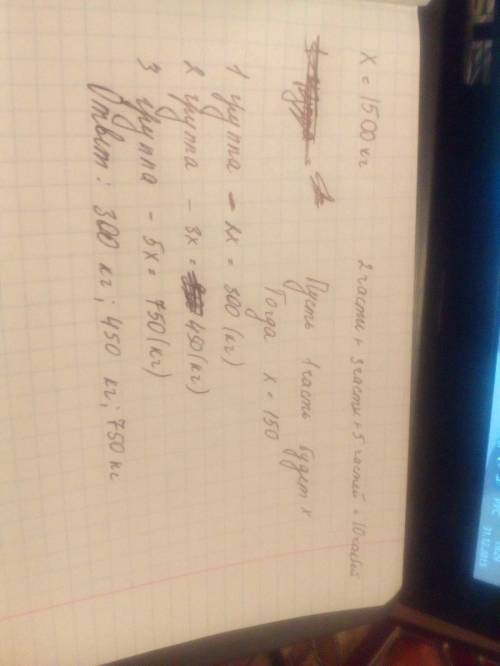 X = 1500 кг
2 части + 3 части + 5 частей = 10 частей
Пусть 1 часть будет x
Тогда x = 150
1 группа - 2x = 300 (кг)
2 группа - 3x = 450 (кг)
3 группа - 5x = 750 (кг)
Ответ: 300 кг; 450 кг; 750 кг